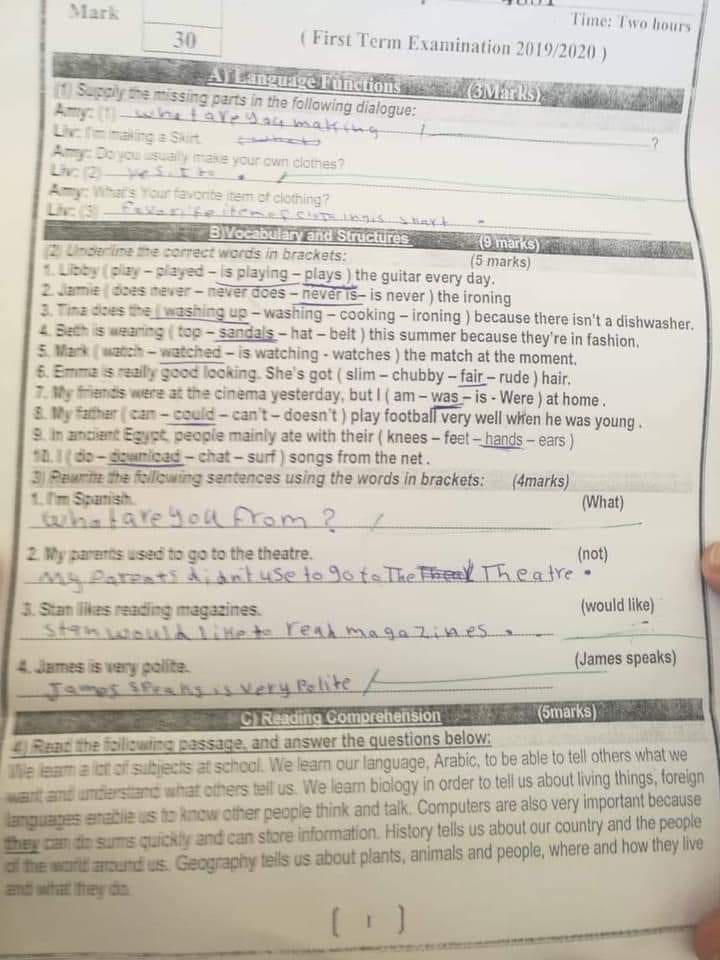 Mark
Time: Two hours
30
( First Term Examination 2019/2020 )
A) Language Functions (3Marks)
(1) Supply the missing parts in the following dialogue:
Amy: (1) what are you making ?
Liv: I'm making a Skirt.
Amy: Do you usually make your own clothes?
Liv: (2) yes. I do.
Amy: What's Your favorite item of clothing?
Liv: (3) favorite item of
B)Vocabulary and Structures (9 marks)
(2) Underline the correct words in brackets: (5 marks)
1. Libby ( play – played – is playing – plays ) the guitar every day.
2. Jamie ( does never – never does – never is– is never ) the ironing
3. Tina does the ( washing up – washing – cooking – ironing ) because there isn't a dishwasher.
4. Beth is wearing ( top – sandals – hat – belt ) this summer because they're in fashion.
5. Mark ( watch – watched – is watching - watches ) the match at the moment.
6. Emma is really good looking. She's got ( slim – chubby – fair – rude ) hair.
7. My friends were at the cinema yesterday, but I ( am – was – is - Were ) at home .
8. My father ( can – could – can't – doesn't ) play football very well when he was young .
9. In ancient Egypt, people mainly ate with their ( knees – feet – hands – ears )
10. I ( do – download – chat – surf ) songs from the net .
3) Rewrite the following sentences using the words in brackets: (4marks)
1. I'm Spanish. (What)
what are you from ?
2. My parents used to go to the theatre. (not)
My Parents didn't use to go to The Theatre .
3. Stan likes reading magazines. (would like)
stan would like to read magazines .
4. James is very polite. (James speaks)
James speaks is very Polite
C) Reading Comprehension (5marks)
4) Read the following passage, and answer the questions below:
We learn a lot of subjects at school. We learn our language, Arabic, to be able to tell others what we
want and understand what others tell us. We learn biology in order to tell us about living things, foreign
languages enable us to know other people think and talk. Computers are also very important because
they can do sums quickly and can store information. History tells us about our country and the people
of the world around us. Geography tells us about plants, animals and people, where and how they live
and what they do.
( 1 )